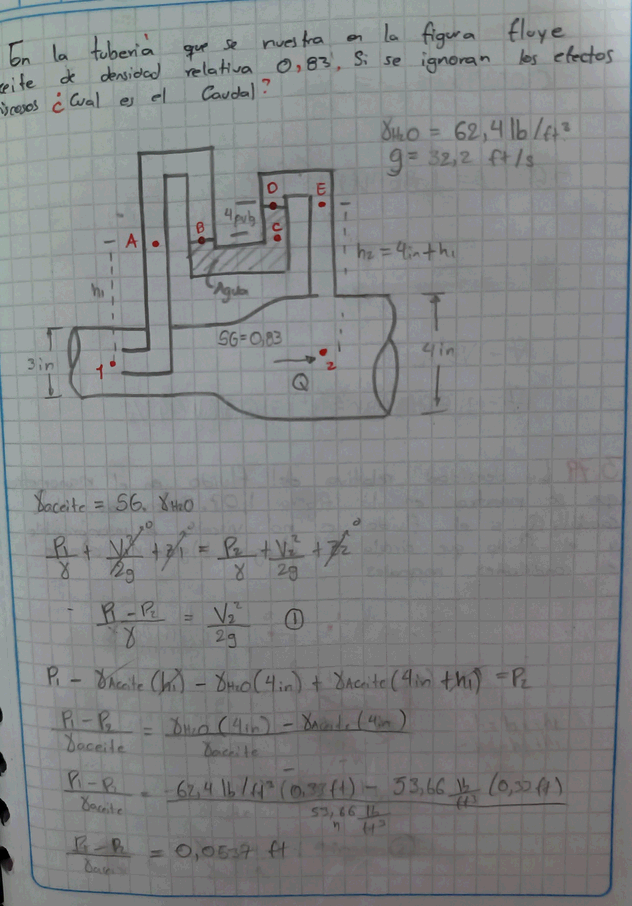 En la tuberia que se muestra en la figura fluye
ceite de densidad relativa 0,83. Si se ignoran los efectos
iscosos ¿Cual es el Caudal?
γH2O = 62,4 lb/ft³
g = 32,2 ft/s
A
B
4pulg
D
C
E
h1
h2 = 4in + h1
Agua
3in
1
SG=0,83
Q
2
4in
γaceite = SG. γH2O
P1/γ + V1²/2g + z1 = P2/γ + V2²/2g + z2
0 0 0
P1 - P2/γ = V2²/2g ①
P1 - γAceite(h1) - γH2O(4in) + γAceite(4in + h1) = P2
P1 - P2/γaceite = γH2O(4in) - γAceite(4in)/γaceite
P1 - P1/γaceite = 62,4 lb/ft³ (0,33ft) - 53,66 lb/ft³ (0,33ft)/53,66 lb/ft³
= 0,0537 ft